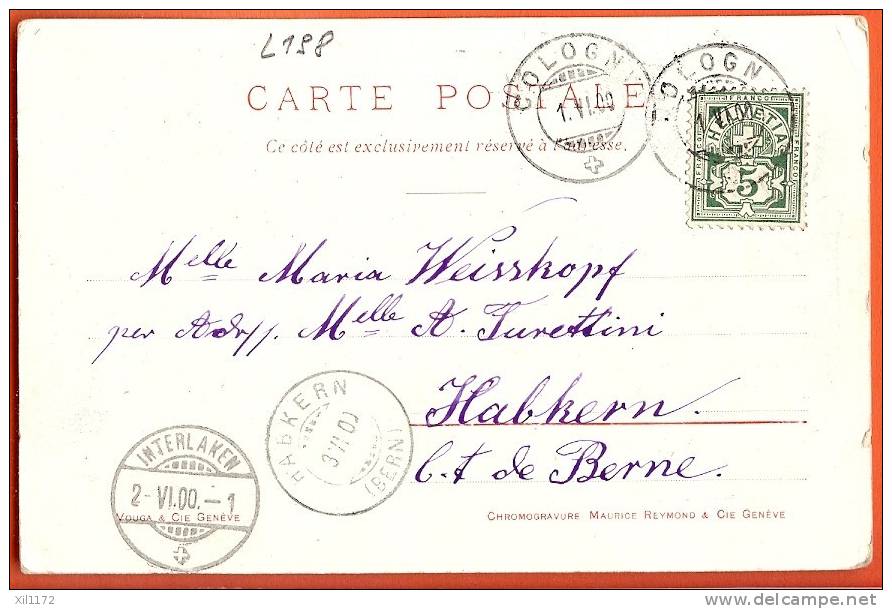 L198
COLOGN
1.VI.00
COLOGN
CARTE POSTALE
Ce côté est exclusivement réservé à l'adresse.
FRANCO
HELVETIA
FRANCO
FRANCO
5
Melle Maria Weisskopf
per Adr. Melle A. Turettini
Habkern.
C.t de Berne.
HABKERN
3.VI.00
(BERN)
INTERLAKEN
2-VI.00.-1
VOUGA & CIE GENÈVE
CHROMOGRAVURE MAURICE REYMOND & CIE GENÈVE
xil1172
delcampe.net